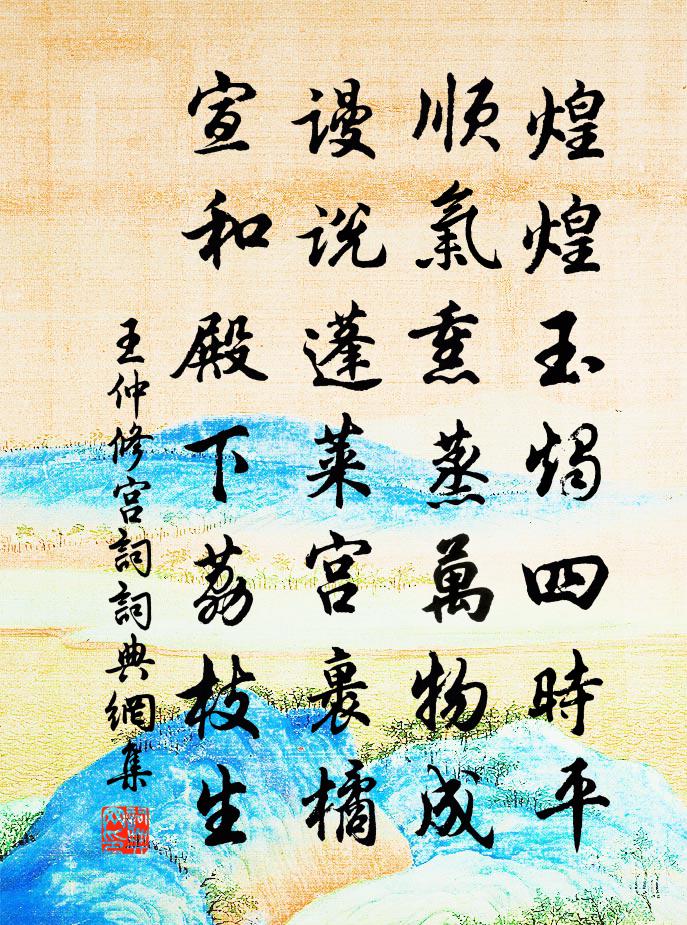 煌煌玉燭四時平
順氣熏蒸萬物成
謾說蓬萊宮裏橘
宣和殿下荔枝生
王仲修宮詞詞典網集